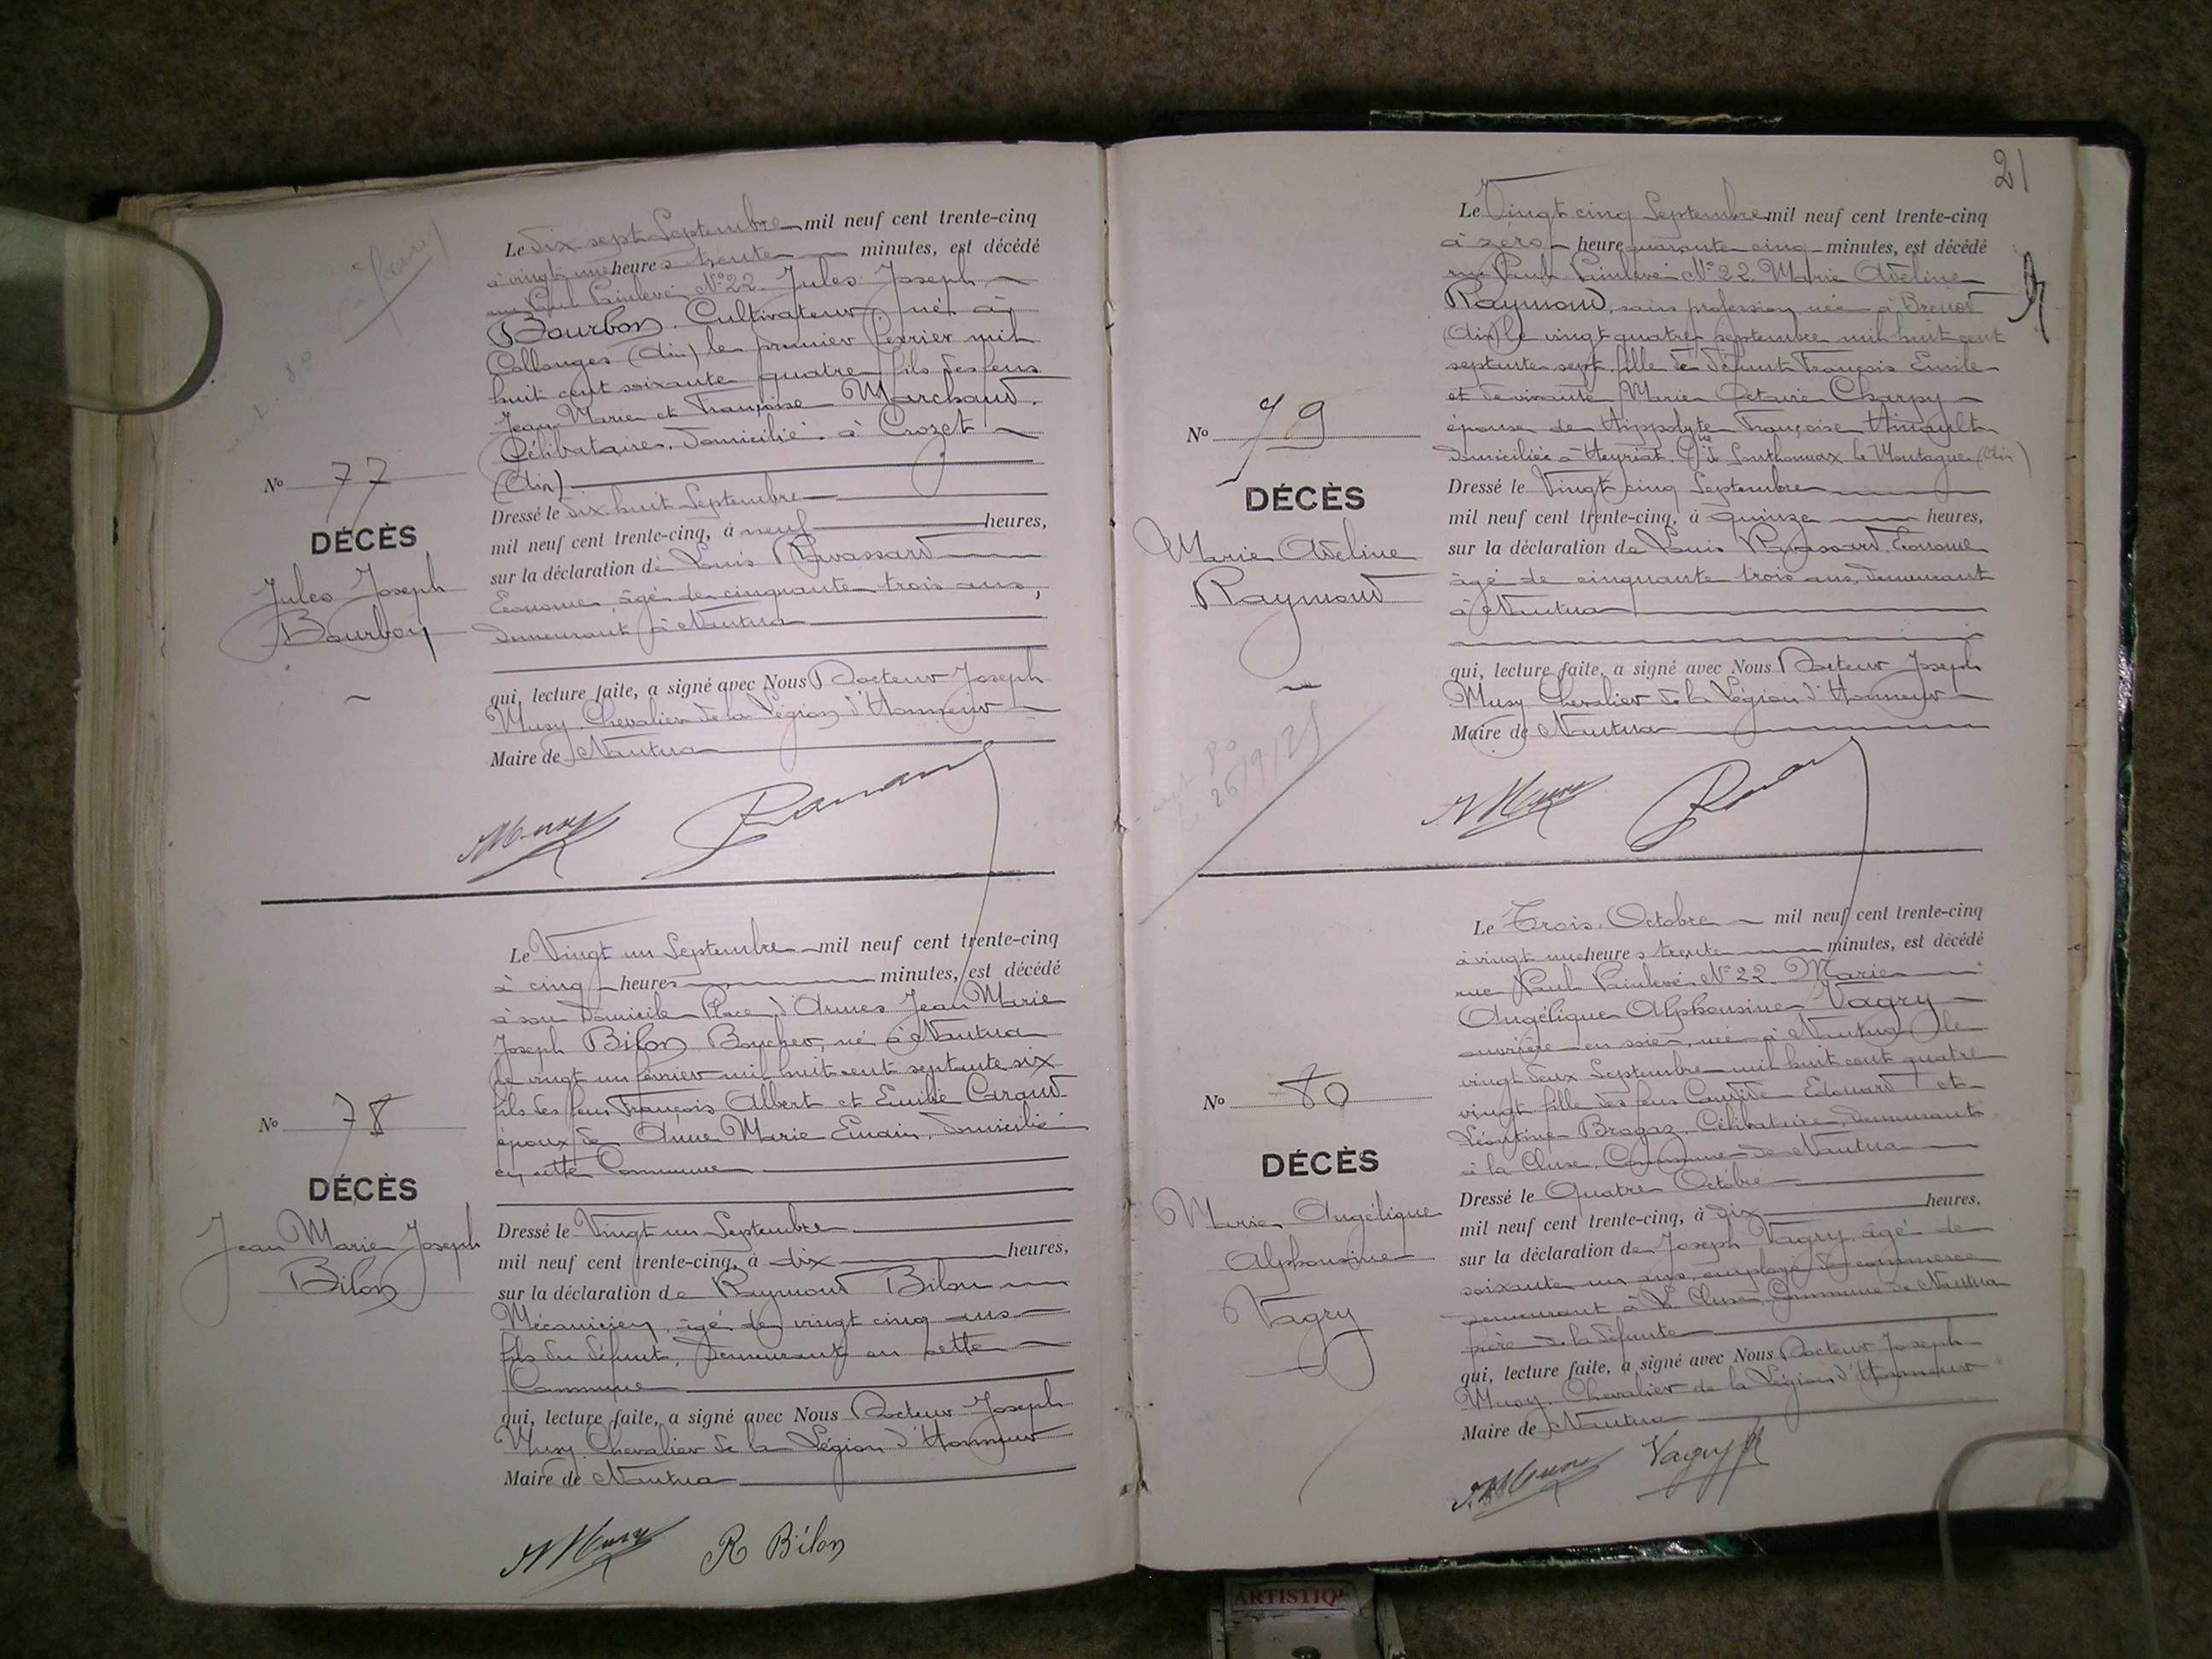 Le dix sept Septembre mil neuf cent trente-cinq
à vingt une heures trente minutes, est décédé
rue Paul Painlevé N° 22 Jules Joseph
Bourbon, Cultivateur, né à
Collonges (Ain) le premier février mil
huit cent soixante quatre fils des feus
Jean Marie et Françoise Marchand.
Célibataire, domicilié à Crozet
(Ain)
N° 77
DÉCÈS
Jules Joseph
Bourbon
Dressé le dix huit Septembre
mil neuf cent trente-cinq, à neuf heures,
sur la déclaration de Louis Ravassard
Econome, âgé de cinquante trois ans,
demeurant à Nantua
qui, lecture faite, a signé avec Nous Docteur Joseph
Musy Chevalier de la Légion d'Honneur
Maire de Nantua
Le Vingt un Septembre mil neuf cent trente-cinq
à cinq heures minutes, est décédé
à son domicile Place d'Armes Jean Marie
Joseph Bilon, né à Nantua
le vingt un février mil huit cent septante six
fils des feus François Albert et Emilie Caraud
époux de Anne Marie domicilié
en cette Commune
N° 78
DÉCÈS
Jean Marie Joseph
Bilon
Dressé le Vingt un Septembre
mil neuf cent trente-cinq, à dix heures,
sur la déclaration de Raymond Bilon
Mécanicien, âgé de vingt cinq ans
fils du défunt, demeurant en cette
Commune
qui, lecture faite, a signé avec Nous Docteur Joseph
Musy Chevalier de la Légion d'Honneur
Maire de Nantua
R Bilon
21
Le Vingt cinq Septembre mil neuf cent trente-cinq
à zéro heure quarante cinq minutes, est décédé
rue Paul Painlevé N° 22 Marie Adeline
Raymond, sans profession née à Brenod
(Ain) le vingt quatre septembre mil huit cent
septante sept fille de défunt François Emile
et de vivante Marie Octavie Charpy
épouse de Hippolyte Françoise Hinault
domiciliée à Heyriat Cne de Sonthonnax la Montagne (Ain)
N° 79
DÉCÈS
Marie Adeline
Raymond
Dressé le Vingt cinq Septembre
mil neuf cent trente-cinq, à quinze heures,
sur la déclaration de Louis Ravassard Econome
âgé de cinquante trois ans, demeurant
à Nantua
qui, lecture faite, a signé avec Nous Docteur Joseph
Musy Chevalier de la Légion d'Honneur
Maire de Nantua
Le Trois Octobre mil neuf cent trente-cinq
à vingt une heures trente minutes, est décédé
rue Paul Painlevé N° 22 Marie
Angélique Alphonsine Vagry
ouvrière en soie, née à Nantua le
vingt deux Septembre mil huit cent quatre
vingt fille des feus Candide Edouard et
Léontine Brogaz, Célibataire, demeurant
à la Cluse, Commune de Nantua
N° 80
DÉCÈS
Marie Angélique
Alphonsine
Vagry
Dressé le Quatre Octobre
mil neuf cent trente-cinq, à dix heures,
sur la déclaration de Joseph Vagry, âgé de
soixante un ans, employé de commerce
demeurant à La Cluse Commune de Nantua
frère de la défunte
qui, lecture faite, a signé avec Nous Docteur Joseph
Musy, Chevalier de la Légion d'Honneur
Maire de Nantua
Vagry
ARTISTIQ